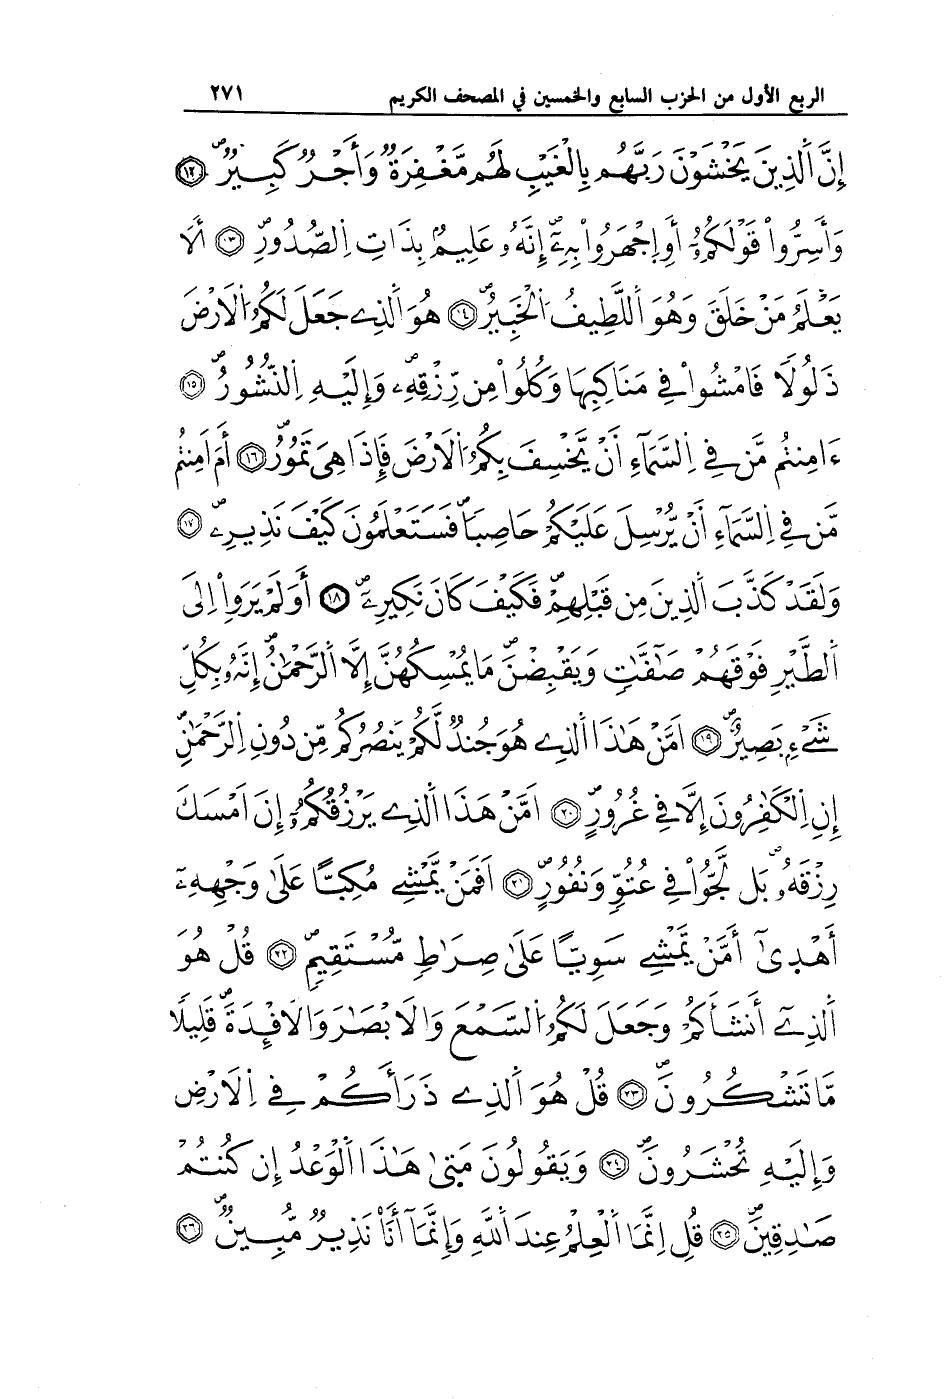 الربع الأول من الحزب السابع والخمسين في المصحف الكريم ٢٧١
إِنَّ اَ۬لذِينَ يَخْشَوْنَ رَبَّهُم بِالْغَيْبِ لَهُم مَّغْفِرَةٌ وَأَجْرٌ كَبِيرٌ ۖ ١٢
وَأَسِرُّواْ قَوْلَكُمُۥٓ أَوِ اِ۪جْهَرُواْ بِهِۦٓۖ إِنَّهُۥ عَلِيمُۢ بِذَاتِ اِ۬لصُّدُورِۖ ١٣ أَلَا
يَعْلَمُ مَنْ خَلَقَ وَهُوَ اَ۬للَّطِيفُ اُ۬لْخَبِيرُۖ ١٤ هُوَ اَ۬لذِے جَعَلَ لَكُمُ اُ۬لَارْضَ
ذَلُولًا فَامْشُواْ فِے مَنَاكِبِهَا وَكُلُواْ مِن رِّزْقِهِۦۖ وَإِلَيْهِ اِ۬لنُّشُورُۖ ١٥
ءَاٰمِنتُم مَّن فِے اِ۬لسَّمَآءِ أَنْ يَّخْسِفَ بِكُمُ اُ۬لَارْضَ فَإِذَا هِيَ تَمُورُۖ ١٦ أَمَ اَمِنتُم
مَّن فِے اِ۬لسَّمَآءِ أَنْ يُّرْسِلَ عَلَيْكُمْ حَاصِباٗۖ فَسَتَعْلَمُونَ كَيْفَ نَذِيرِۦۖ ١٧
وَلَقَدْ كَذَّبَ اَ۬لذِينَ مِن قَبْلِهِمْۖ فَكَيْفَ كَانَ نَكِيرِۦۖ ١٨ أَوَلَمْ يَرَوِاْ اِلَى
اَ۬لطَّيْرِ فَوْقَهُمْ صَٰٓفَّٰتٖ وَيَقْبِضْنَۖ مَا يُمْسِكُهُنَّ إِلَّا اَ۬لرَّحْمَٰنُۖ إِنَّهُۥ بِكُلِّ
شَےْءِۢ بَصِيرٌۖ ١٩ اَمَّنْ هَٰذَا اَ۬لذِے هُوَ جُندٌ لَّكُمْ يَنصُرُكُم مِّن دُونِ اِ۬لرَّحْمَٰنِۖ
إِنِ اِ۬لْكَٰفِرُونَ إِلَّا فِے غُرُورٍۖ ٢٠ اَمَّنْ هَٰذَا اَ۬لذِے يَرْزُقُكُمُۥٓ إِنَ اَمْسَكَ
رِزْقَهُۥۖ بَل لَّجُّواْ فِے عُتُوٍّ وَنُفُورٍۖ ٢١ اَفَمَنْ يَّمْشِے مُكِبّاً عَلَىٰ وَجْهِهِۦٓ
أَهْدَىٰٓ أَمَّنْ يَّمْشِے سَوِيّاً عَلَىٰ صِرَٰطٖ مُّسْتَقِيمٖۖ ٢٢ قُلْ هُوَ
اَ۬لذِےٓ أَنشَأَكُمْ وَجَعَلَ لَكُمُ اُ۬لسَّمْعَ وَالَابْصَٰرَ وَالَافْـِٕدَةَۖ قَلِيلاً
مَّا تَشْكُرُونَۖ ٢٣ قُلْ هُوَ اَ۬لذِے ذَرَأَكُمْ فِے اِ۬لَارْضِ
وَإِلَيْهِ تُحْشَرُونَۖ ٢٤ وَيَقُولُونَ مَتَىٰ هَٰذَا اَ۬لْوَعْدُ إِن كُنتُمْ
صَٰدِقِينَۖ ٢٥ قُلِ اِنَّمَا اَ۬لْعِلْمُ عِندَ اَ۬للَّهِ وَإِنَّمَآ أَنَا نَذِيرٌ مُّبِينٌۖ ٢٦